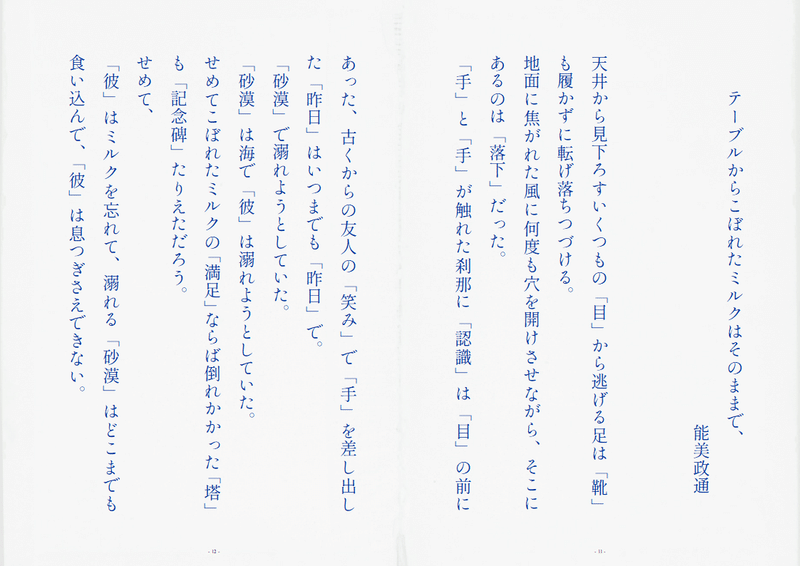 テーブルからこぼれたミルクはそのままで、
能美政通
天井から見下ろすいくつもの「目」から逃げる足は「靴」
も履かずに転げ落ちつづける。
地面に焦がれた風に何度も穴を開けさせながら、そこに
あるのは「落下」だった。
「手」と「手」が触れた刹那に「認識」は「目」の前に
- 11 -
あった、古くからの友人の「笑み」で「手」を差し出し
た「昨日」はいつまでも「昨日」で。
「砂漠」で溺れようとしていた。
「砂漠」は海で「彼」は溺れようとしていた。
せめてこぼれたミルクの「満足」ならば倒れかかった「塔」
も「記念碑」たりえただろう。
せめて、
「彼」はミルクを忘れて、溺れる「砂漠」はどこまでも
食い込んで、「彼」は息つぎさえできない。
- 12 -